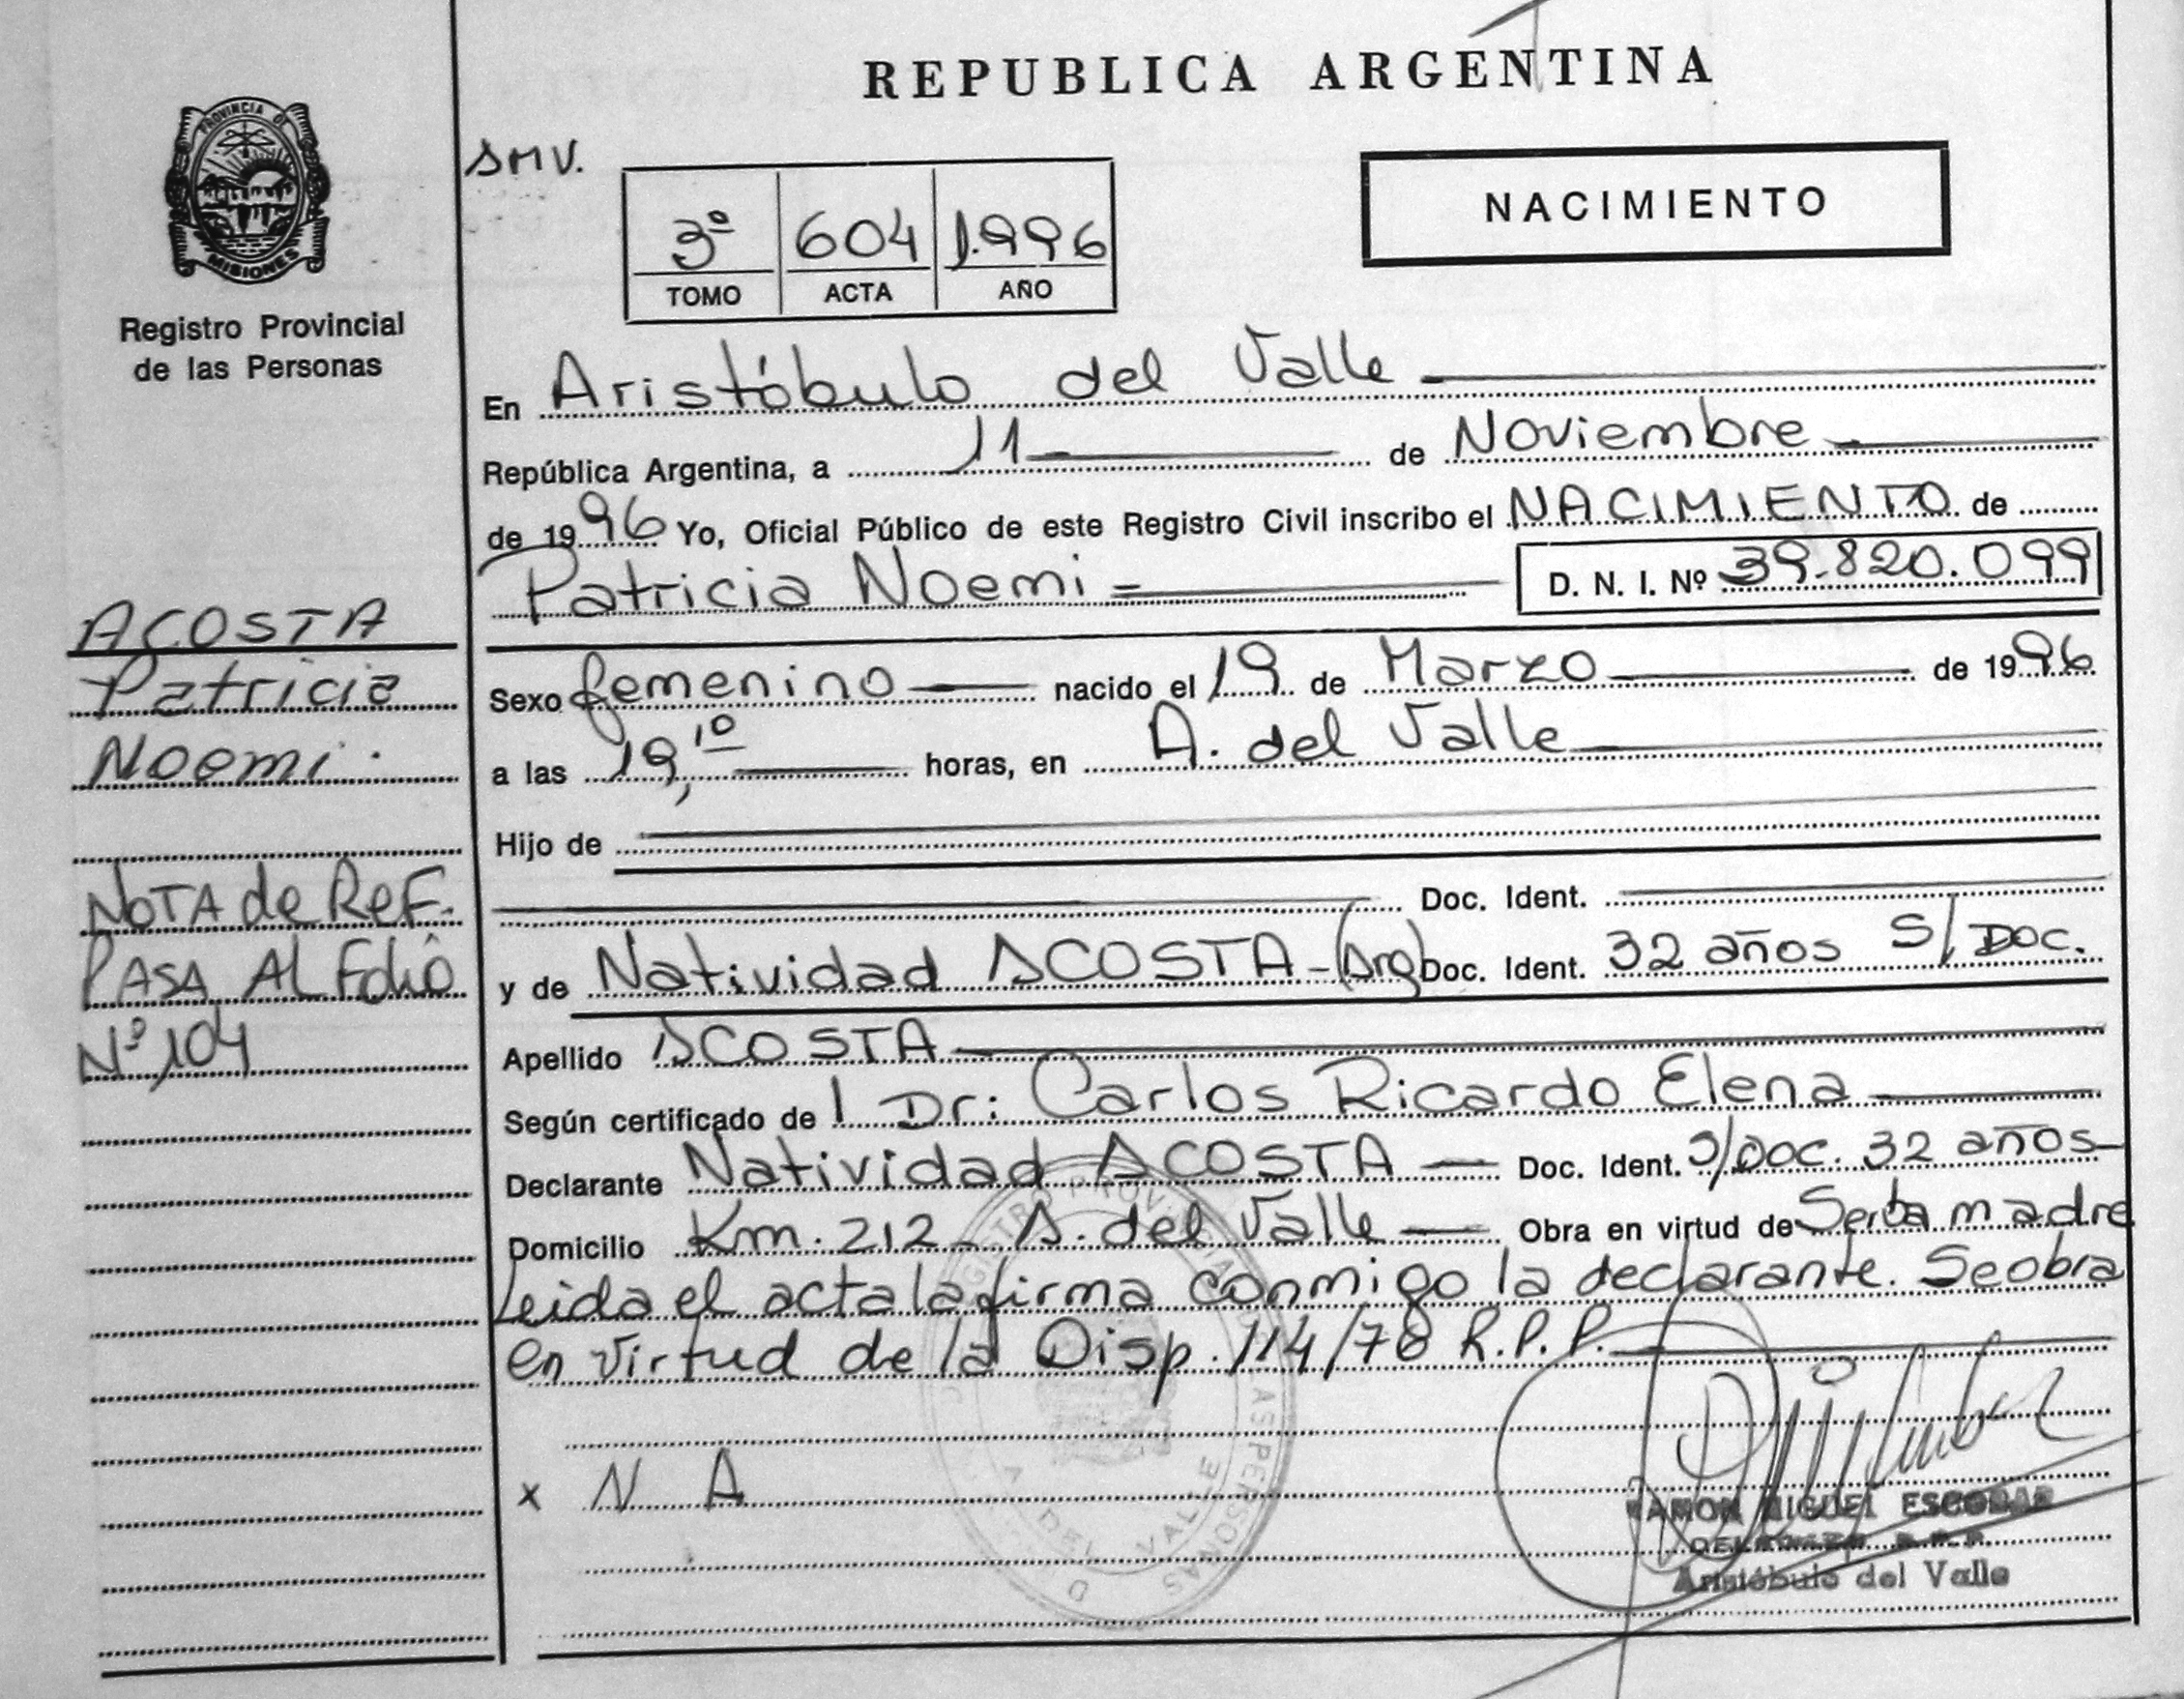 REPUBLICA ARGENTINA
PROVINCIA DE
MISIONES
Registro Provincial
de las Personas
SMV.
3º 604 1.996
TOMO ACTA AÑO
NACIMIENTO
En Aristóbulo del Valle
República Argentina, a 11 de Noviembre
de 1996 Yo, Oficial Público de este Registro Civil inscribo el NACIMIENTO de
Patricia Noemi = D. N. I. Nº 39.820.099
ACOSTA
Patricia
Noemi.
Sexo femenino nacido el 19 de Marzo de 1996
a las 19,10 horas, en A. del Valle
Hijo de
Doc. Ident.
y de Natividad ACOSTA-(Arg) Doc. Ident. 32 años S/Doc.
NOTA de ReF.
PASA AL Folio
Nº 104
Apellido ACOSTA
Según certificado de l Dr: Carlos Ricardo Elena
Declarante Natividad ACOSTA — Doc. Ident. S/DOC. 32 años
Domicilio Km. 212 - A. del Valle — Obra en virtud de Ser la madre
Leida el acta la firma conmigo la declarante. Se obra
en virtud de la Disp. 114/78 R.P.P.
x N A
REGISTRO PROVINCIAL DE LAS PERSONAS
A. DEL VALLE
RAMON MIGUEL ESCOBAR
DELEGADO R.P.P.
Aristóbulo del Valle